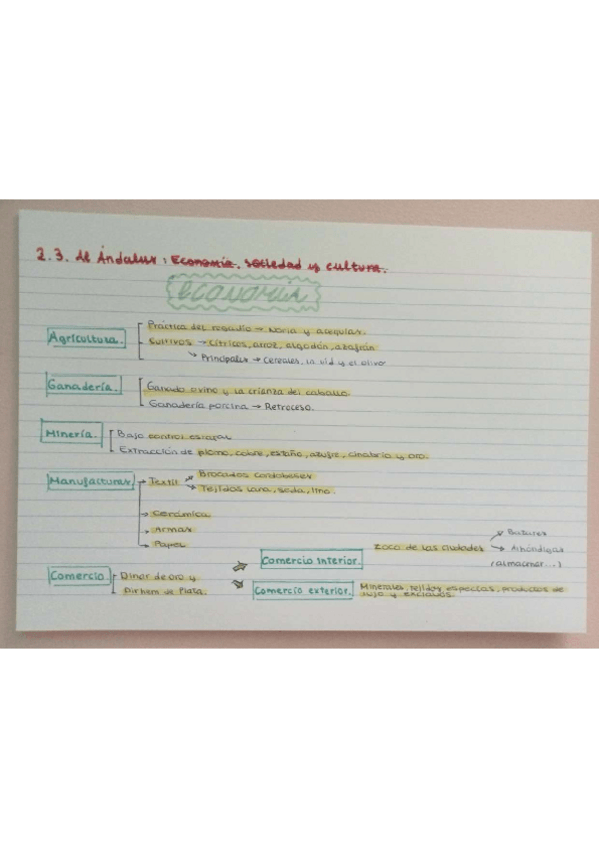 2.3. Al Ándalus: Economía, sociedad y cultura.
ECONOMÍA
Agricultura.
Práctica del regadío → Noria y acequias.
Cultivos → Cítricos, arroz, algodón, azafrán
↳ Principales → Cereales, la vid y el olivo
Ganadería.
Ganado ovino y la crianza del caballo
Ganadería porcina → Retroceso.
Minería.
Bajo control estatal
Extracción de plomo, cobre, estaño, azufre, cinabrio y oro.
Manufacturas
→ Textil
Brocados cordobeses
Tejidos lana, seda, lino.
→ Cerámica
→ Armas
→ Papel
Comercio
Dinar de oro y
Dirhem de Plata.
Comercio interior.
Zoco de las ciudades
→ Bazares
→ Alhóndigas
(almacenar...)
Comercio exterior.
Minerales, tejidos, especias, productos de
lujo y esclavos.